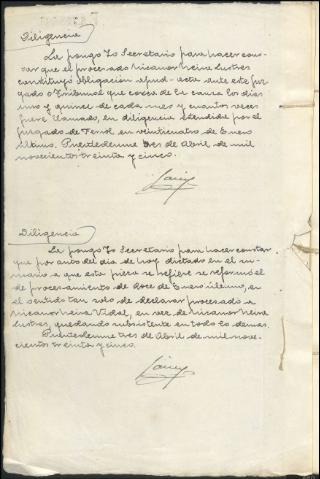 Diligencia
La pongo Yo Secretario para hacer cons-
tar que el procesado Nicanor Neira Lustres
constituyó obligación apud-acta ante este juz-
gado o Tribunal que conozca de la causa los días
uno y quince de cada mes y cuantas veces
fuere llamado, en diligencia extendida por el
juzgado de Ferrol en veinticuatro de Enero
último. Puentedeume tres de Abril de mil
novecientos treinta y cinco.
Diligencia
La pongo Yo Secretario para hacer constar
que por auto del dia de hoy dictado en el su-
mario a que esta pieza se refiere se reformó el
de procesamiento de doce de Enero último, en
el sentido tan solo de declarar procesado a
Nicanor Neira Vidal, en vez de Nicanor Neira
Lustres, quedando subsistente en todo lo demas.
Puentedeume tres de Abril de mil nove-
cientos treinta y cinco.